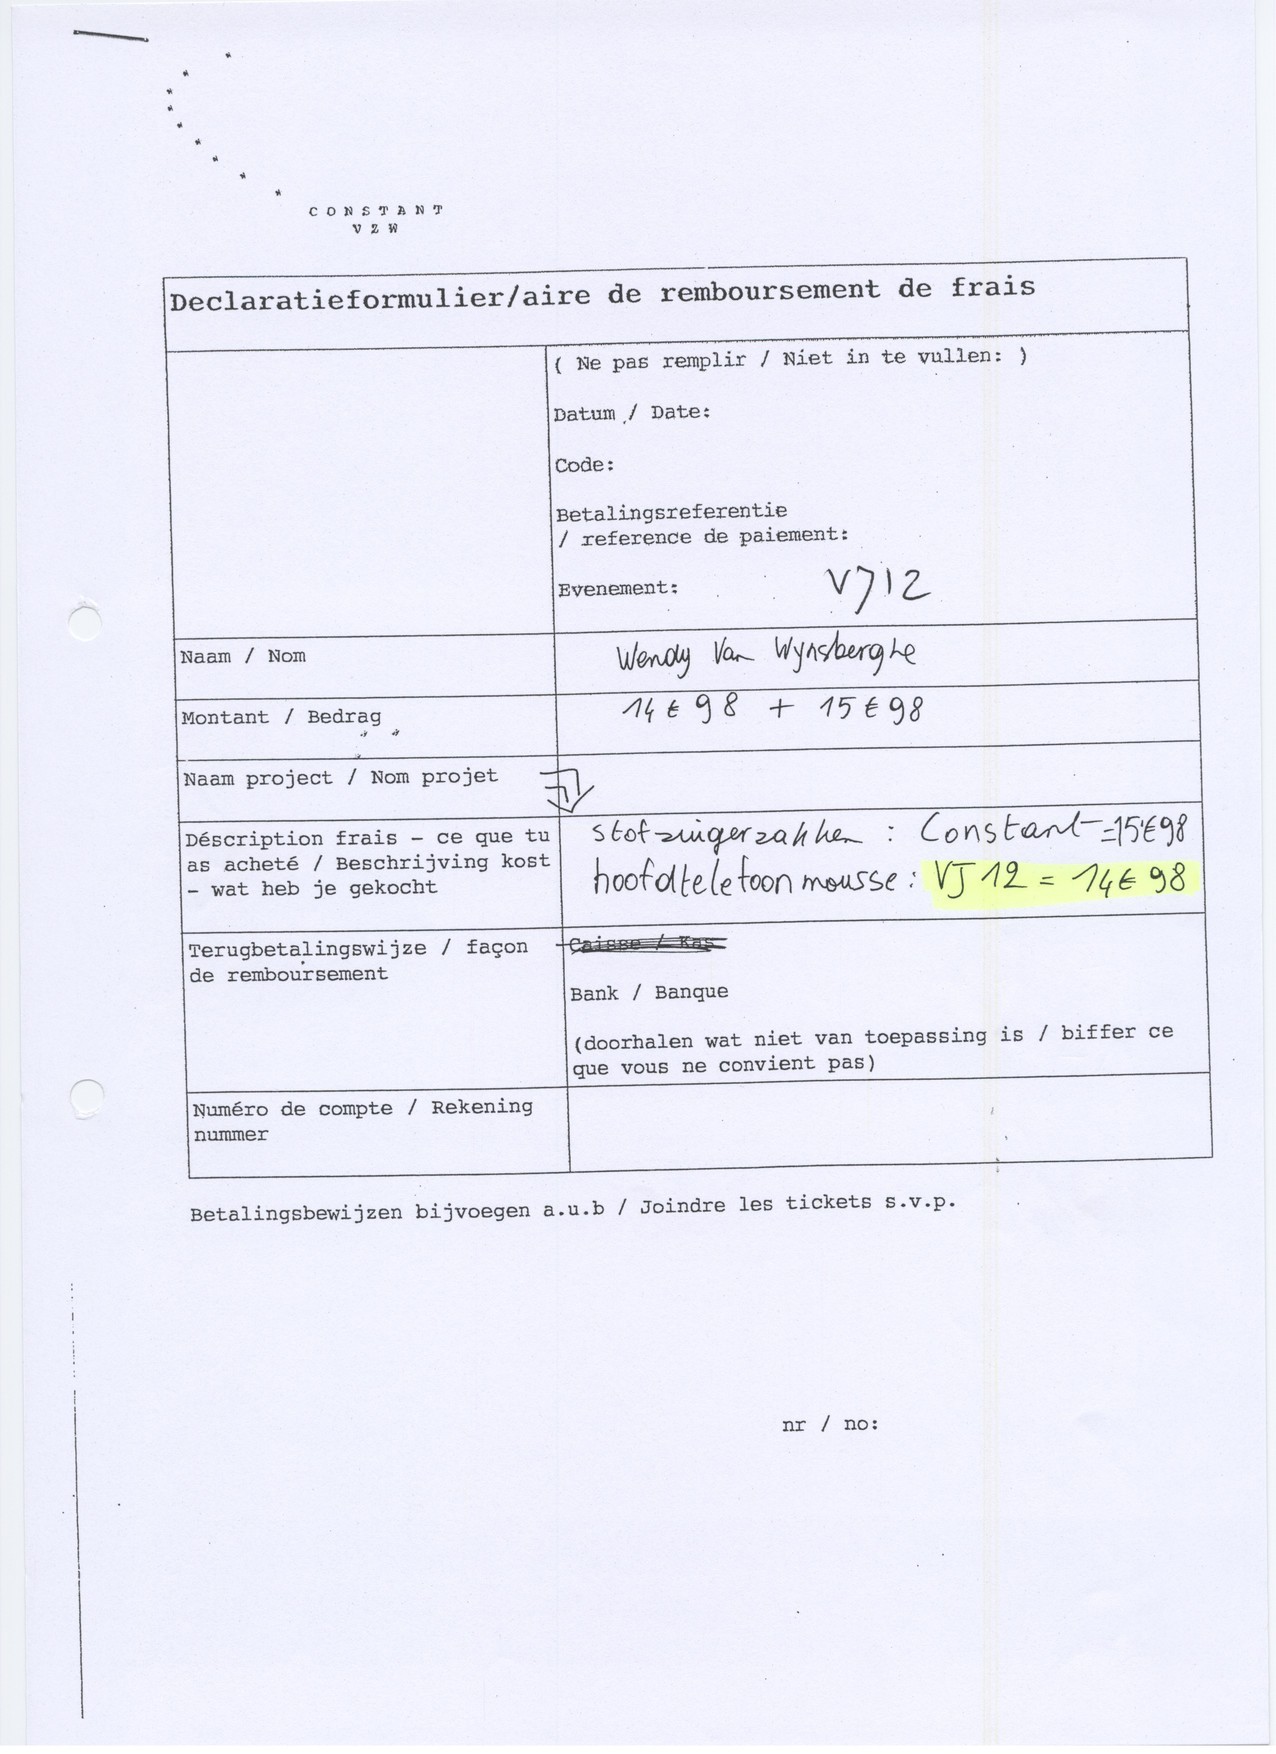 CONSTANT
VZW
Declaratieformulier/aire de remboursement de frais
( Ne pas remplir / Niet in te vullen: )
Datum / Date:
Code:
Betalingsreferentie
/ reference de paiement:
Evenement: VJ12
Naam / Nom
Wendy Van Wynsberghe
Montant / Bedrag
14€98 + 15€98
Naam project / Nom projet
Déscription frais - ce que tu
as acheté / Beschrijving kost
- wat heb je gekocht
stofzuigerzakken : Constant = 15€98
hoofdtelefoon mousse : VJ12 = 14€98
Terugbetalingswijze / façon
de remboursement
Caisse / Kas
Bank / Banque
(doorhalen wat niet van toepassing is / biffer ce
que vous ne convient pas)
Numéro de compte / Rekening
nummer
Betalingsbewijzen bijvoegen a.u.b / Joindre les tickets s.v.p.
nr / no: